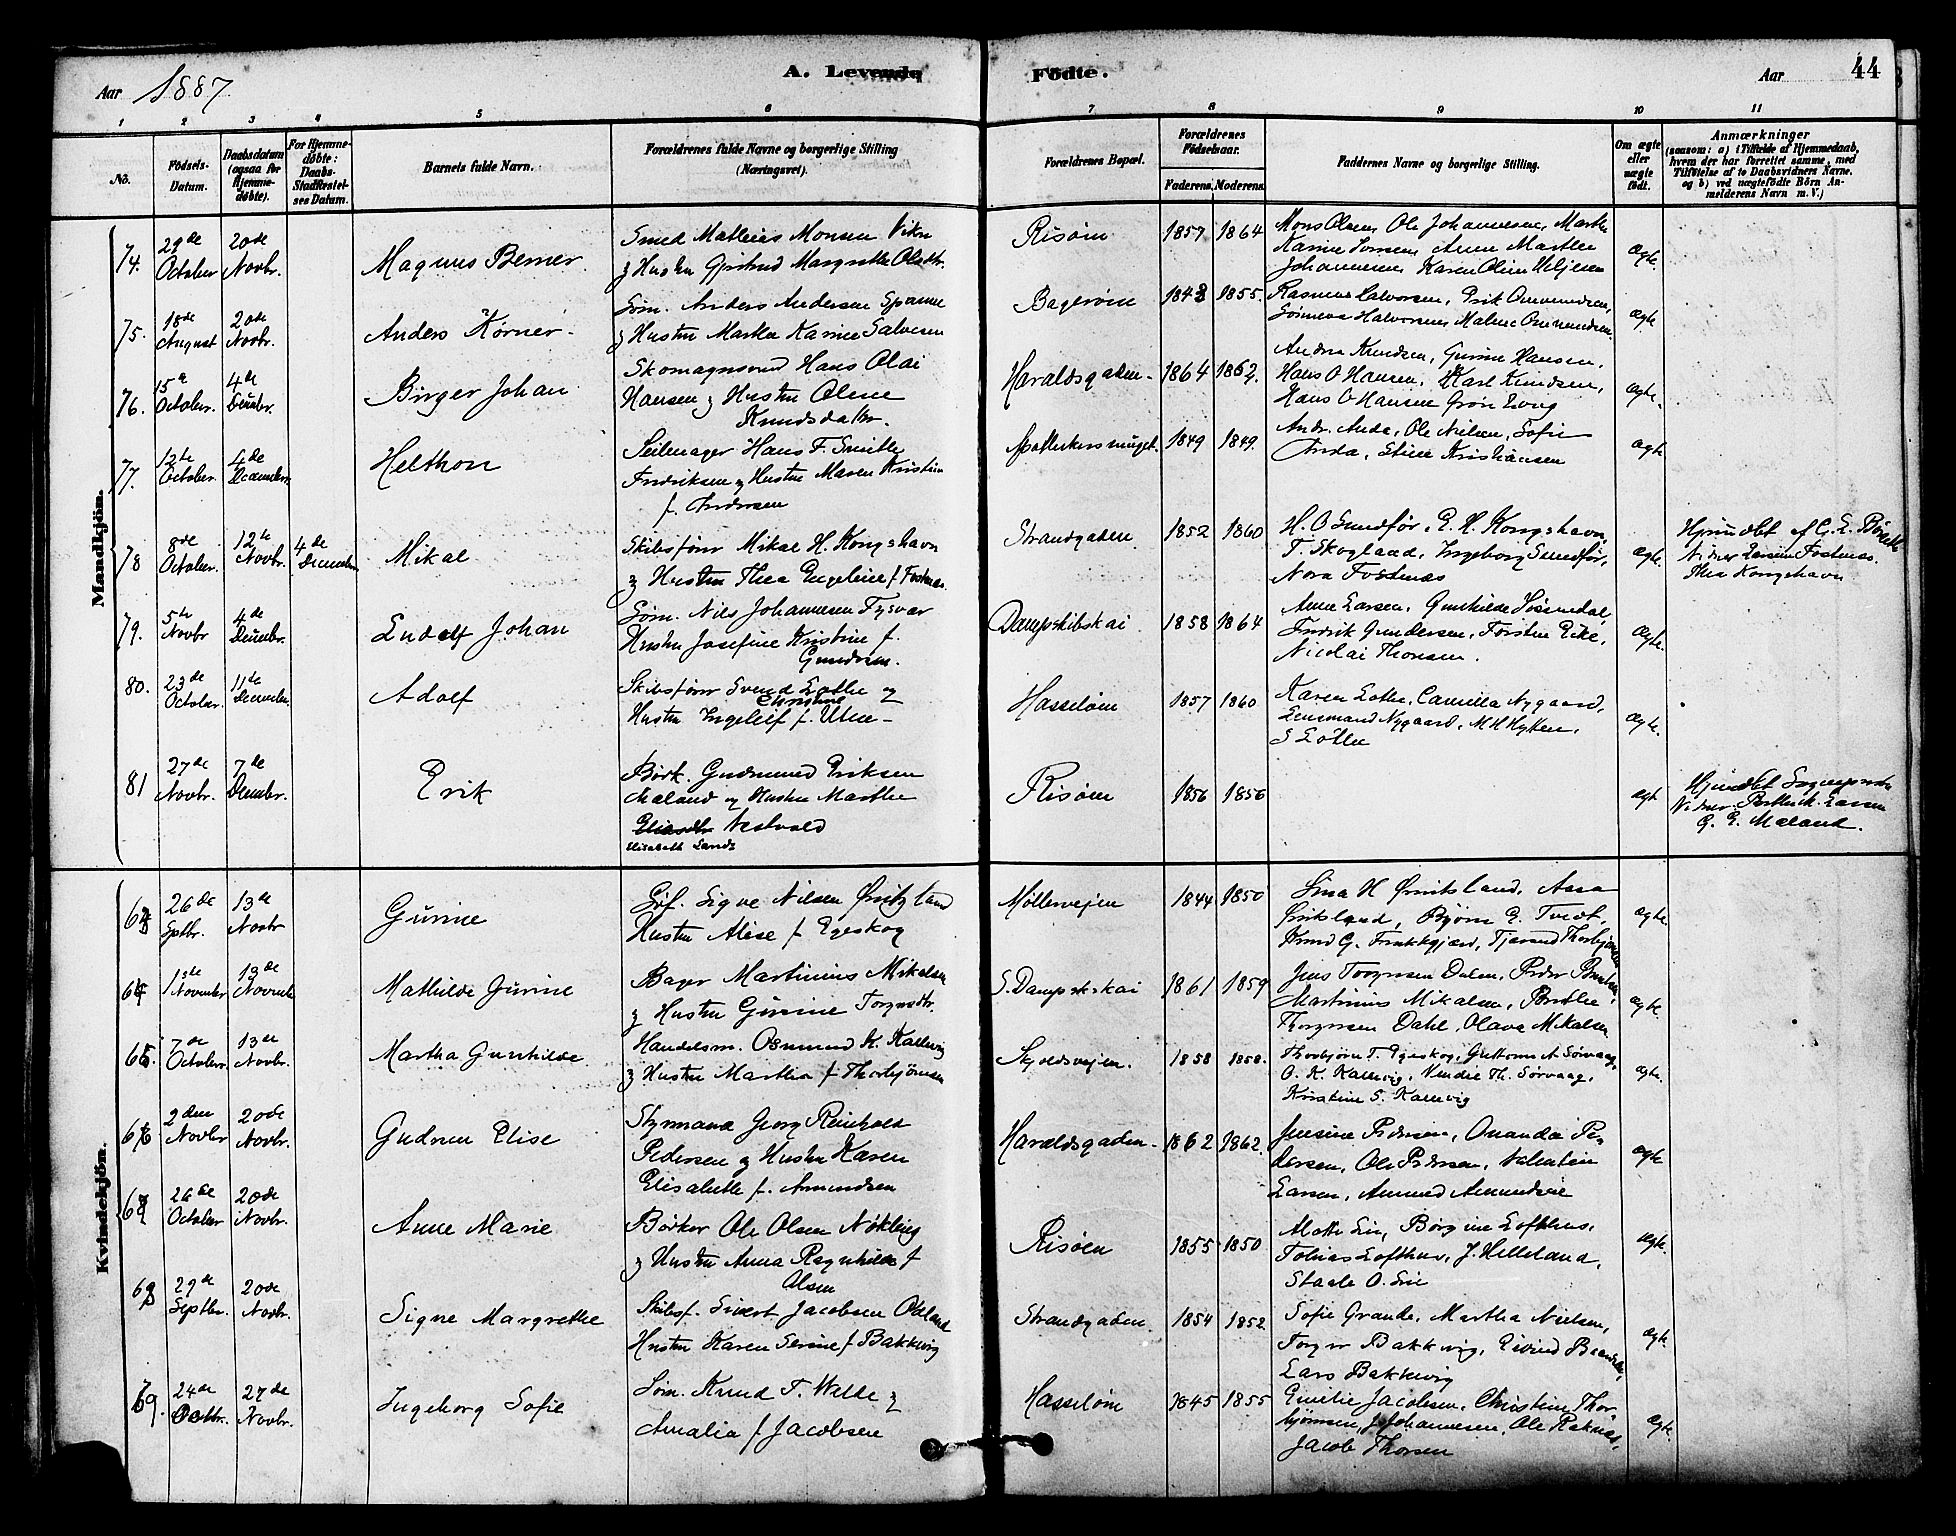 Aar 1887.
A. Levende Födte.
Aar 44
1 2 3 4 5 6 7 8 9 10 11
No.
Födsels-Datum.
Daabsdatum (ogsaa for Hjemme-døbte).
For Hjemme-døbte: Daabs-Stadfæstel-ses Datum.
Barnets fulde Navn.
Forældrenes fulde Navne og borgerlige Stilling (Næringsvei).
Forældrenes Bopæl.
Forældrenes Födselsaar.
Faderens. Moderens.
Faddernes Navne og borgerlige Stilling.
Om ægte eller uægte født.
Anmærkninger
(saasom: a) i Tilfælde af Hjemmedaab, hvem der har forrettet samme, med Tilføielse af to Daabsvidners Navne, og b) ved uægtefödte Börn An-melderens Navn m. V.)
Mandkjön.
74. 29de October 20de Novbr. Magnus Berner.
Smed Mathias Monsen Vikn
& Hustru Gjertrud Margrethe Olsdtr.
Risøen 1857 1864
Mons Olsen, Ole Johannesen, Marthe
Karine Jonsen, Anne Marthe
Johannesen Karen Oline Veljesen
ægte.
75. 18de August 20de Novbr. Anders Körner.
Søm. Anders Andersen Spanne
& Hustru Martha Karine Salvesen
1843 1855.
Rasmus Halvorsen, Erik Omundsen,
Halvorsen, Malene Omundsen
ægte
76. 15de October. 4de Decmbr. Birger Johan
Skomagersvend Hans Olai
Hansen & Hustru Oline
Knudsdatter.
Haraldsgaden 1864 1862.
Andrea Knudsen, Gurine Hansen,
Hans O Hansen, Karl Knudsen,
Hans O Hansen
ægte.
77. 12te October. 4de December Helthon
Seilmager Hans F. Smith
Fredriksen & Hustru Maren Kristine
f. Andersen
Apothekersmuget. 1849 1849.
Andr. Anda, Ole Nielsen, Sofie
Anda, Stine Kristiansen
ægte
78 8de October. 12te Novbr. 4de December Mikal
Skibsfører Mikal H. Kongshavn
& Hustru Thea Engeline f Fosnæs
Strandgaden 1852 1860
H. O Sundfør, E. H. Kongshavn,
T. Skogland, Ingeborg Sundfør,
Nora Fostnæs
ægte.
Hjemdbt af
Vidner Fostnæs.
Thea Kongshavn
79. 5te Novbr 4de Decmbr. Ludolf Johan
Søm. Nils Johannesen Tysvær
Hustru Josefine Kristine f.
Gundersen.
Dampskibskai 1858 1864
Anne Larsen, Gunhilde
Fredrik Gundersen, Torsten Eike,
Nicolai Thonsen.
ægte.
80. 23de October. 11te December. Adolf
Skibsfører Svend Lothe og
Christine
Hustru Ingeleif f. Utne
Hasseløen 1857 1860
Karen Lothe, Camilla Nygaard,
Lensmand Nygaard, M H Hytten,
S Lothe
ægte.
81 27de Novbr. 7de Decmbr. Erik
Bødk. Gudmund Eriksen
Mæland og Hustru Marthe
Elisadtr Nestvold
Elisabeth Sands
Risøen 1856 1856
ægt
Hjemdbt Sognepresten
Vidner Larsen
G. E. Mæland.
Kvindekjön.
63 26de Sptbr. 13de Novbr Gurine
Sigve Nilsen
Hustru Alise f Egeskog
Møllerveien 1844 1850
Bjørn E. Tvedt,
ægte
64 1ste November 13de November Mathilde Gurine
Bager Martinius Mikalsen
& Hustru Gurine Torgersdtr.
S. Dampskskai 1861 1859
Jens Torgersen Dalen, Peder
Martinius Mikalsen,
Thorgersen Dahl, Olava Mikalsen
ægte.
65. 7de October 13de Novbr. Martha Gunhilde
Handelsm. Osmund K. Kallevig
& Hustru Martha f Thorbjørnsen
Skjoldsveien. 1858 1858.
Thorbjørn T. Egeskog, Guttorm A Sørvaag,
O. K. Kallevig, Vendie Th. Sørvaag,
Kristine S. Kallevig
ægte.
66 2den Novbr 20de Novbr. Gudrun Elise
Styrmand Georg Reinholdt
Pedersen og Hustru Karen
Elisabeth f. Amundsen
Haraldsgaden 1862 1862.
Jensine Pedersen, Amanda Pe-
dersen, Ole Pedersen, Valentin
Larsen, Amund Amundsen
ægte
67 26de October 20de Novbr. Anne Marie
Bødker Ole Olsen Nökling
& Hustru Anna Ragnhilde f
Olsen
Risøen 1855 1850
Lie, Børgine Lofthus,
Tobias Lofthus, J. Helleland,
Staale O. Lie
ægte.
68 29de Septbr. 20de Novbr. Signe Margrethe
Skibsf. Sivert Jacobsen Ødeland
Hustru Karen Serine f Bakkevig
Strandgaden 1854 1852
Sofie Grande, Martha Nielsen,
Torger Bakkevig, Eivind
Lars Bakkevig
ægte.
69. 24de Octbr. 27de Novbr. Ingeborg Sofie
Søm. Knud T. Walde &
Amalia f Jacobsen
Hasseløen 1845 1855
Emilie Jacobsen, Christine Thor-
bjørnsen, J Johannesen, Ole Røknes,
Jacob Thorsen
ægte.